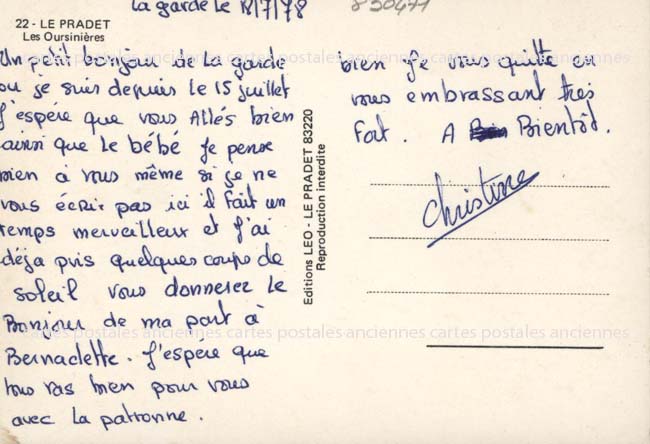 la garde le 18/7/78
830411
22 - LE PRADET
Les Oursinières
Un petit bonjour de la garde
ou je suis depuis le 15 juillet
J'espère que vous Allés bien
ainsi que le bébé Je pense
bien à vous même si je ne
vous écris pas ici il fait un
temps merveilleux et j'ai
déja pris quelques coups de
soleil vous donnerez le
Bonjour de ma part à
Bernadette. J'espère que
tous vas bien pour vous
avec la patronne.
Editions LEO - LE PRADET 83220
Reproduction interdite
bien je vous quitte en
vous embrassant très
fort. A Bientôt.
Christine
cartes postales anciennes cartes postales anciennes cartes postales anciennes
cartes postales anciennes cartes postales anciennes cartes postales anciennes